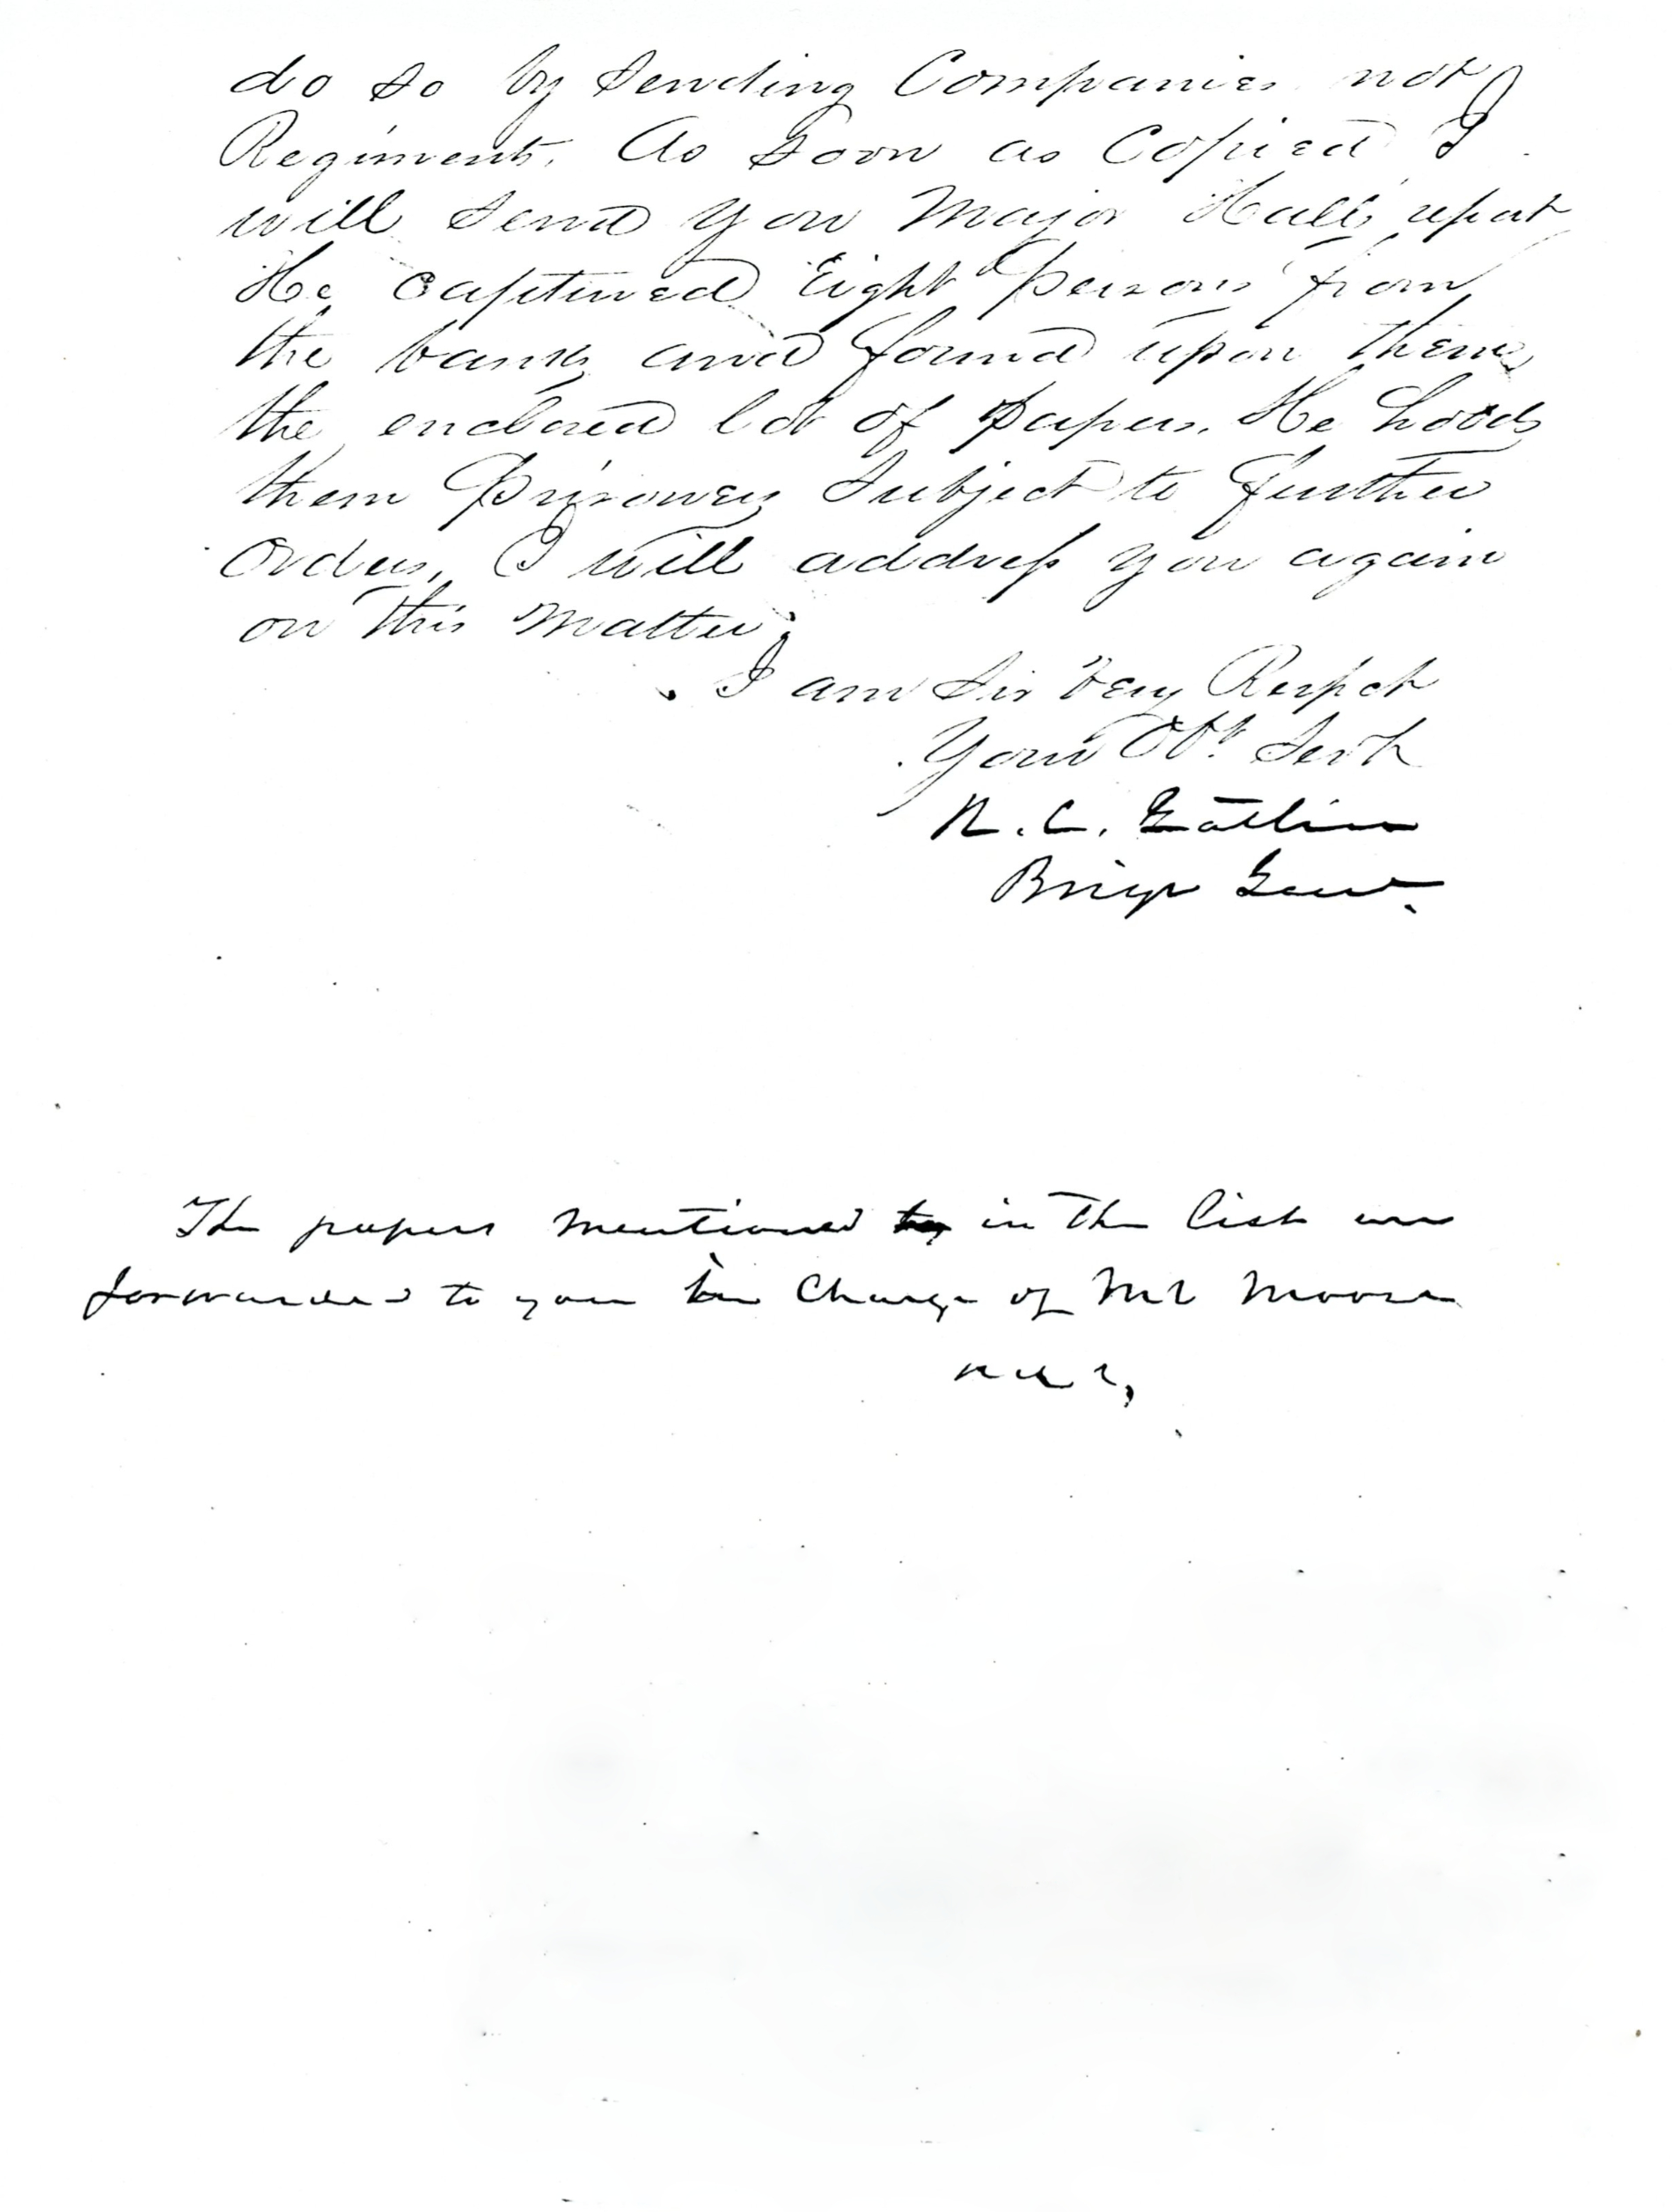 do so by sending Companies not
Regiments. As soon as Copied I
will send you Major Halls report
He captured Eight persons from
the banks and found upon them
the enclosed lot of papers. He holds
them Prisoners subject to further
Orders. I will address you again
on this matter.
I am Sir Very Respct
Your Obt. Servt
R. C. Gatlin
Brig Genl.
The papers mentioned in the list are
forwarded to you in Charge of Mr Moore